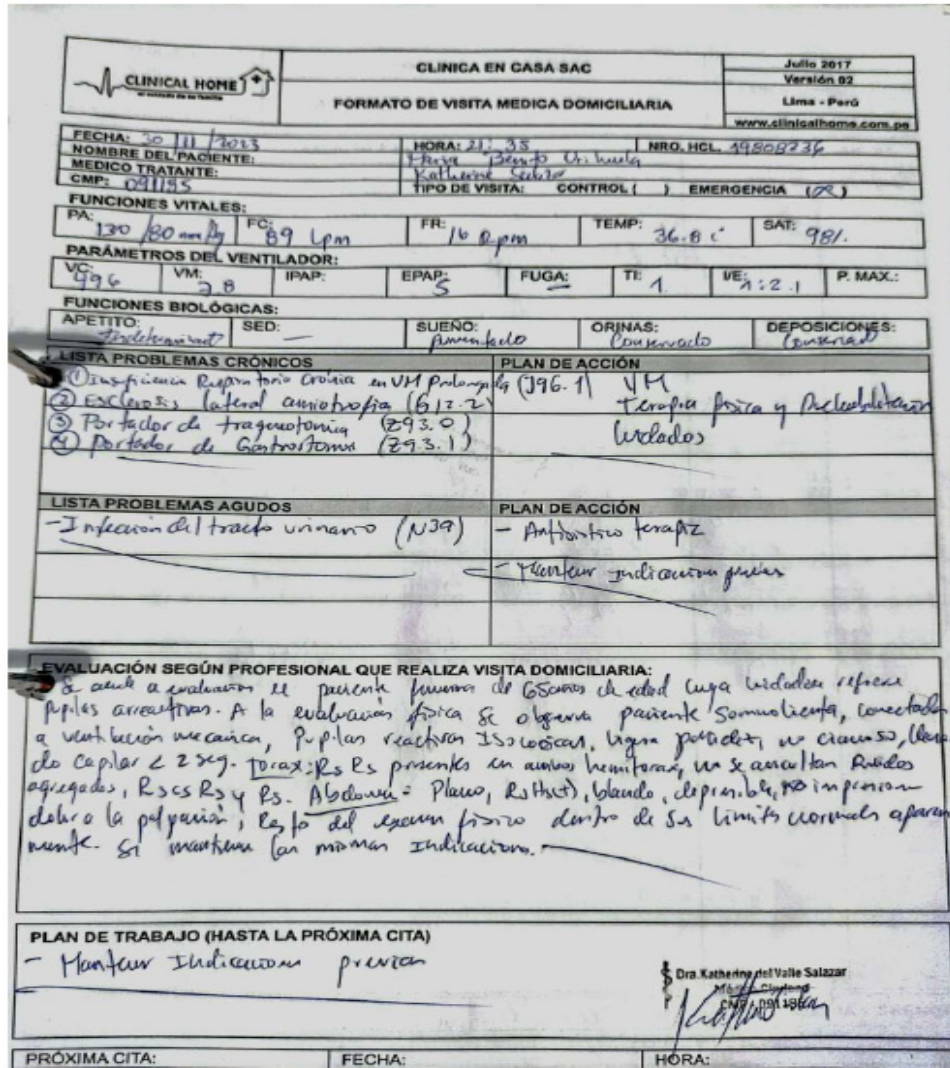 CLINICAL HOME
CLINICA EN CASA SAC
FORMATO DE VISITA MEDICA DOMICILIARIA
Julio 2017
Versión 02
Lima - Perú
www.clinicalhome.com.pe
FECHA: 30 / 11 / 2023 HORA: 21:35 NRO. HCL. 19808236
NOMBRE DEL PACIENTE: Benito Orihuela
MEDICO TRATANTE: Katherine
CMP: 091185 TIPO DE VISITA: CONTROL ( ) EMERGENCIA (X)
FUNCIONES VITALES:
PA: 130/80 mmHg FC: 89 lpm FR: 16 Rpm TEMP: 36.8 c° SAT: 98%.
PARÁMETROS DEL VENTILADOR:
VC: 496 VM: 7.8 IPAP: EPAP: 5 FUGA: — TI: 1. I/E: 1:2.1 P. MAX.:
FUNCIONES BIOLÓGICAS:
APETITO: SED: — SUEÑO: Aumentado ORINAS: Conservado DEPOSICIONES: Conservado
LISTA PROBLEMAS CRÓNICOS PLAN DE ACCIÓN
① Insuficiencia Respiratoria Crónica en VM Prolongada (J96.1) VM
② Esclerosis lateral amiotrofica (G12.2) Terapia fisica y
③ Portador de traqueotomia (Z93.0) Cuidados
④ Portador de Gastrostomia (Z93.1)
LISTA PROBLEMAS AGUDOS PLAN DE ACCIÓN
- Infección del tracto urinario (N39) - Antibiotico terapia
- Mantener Indicaciones previas
EVALUACIÓN SEGÚN PROFESIONAL QUE REALIZA VISITA DOMICILIARIA:
Se acude a evaluacion de paciente femenina de 65 años de edad cuya cuidadora refiere
Pupilas arreactivas. A la evaluación fisica se observa paciente Somnolienta, conectada
a ventilación mecanica, Pupilas reactivas Isocoricas, ligera palidez, no cianosis, llena
do capilar < 2 seg. Torax: Rs Rs presentes en ambos hemitorax, no se auscultan Ruidos
agregados, RsCs Rs y Rs. Abdomen = Plano, RsHs(+), blando, depresible, no impresiona
dolor a la palpación, Resto del examen fisico dentro de sus limites normales aparen
mente. Se mantienen las mismas Indicaciones.
PLAN DE TRABAJO (HASTA LA PRÓXIMA CITA)
- Mantener Indicaciones previas
Dra. Katherine del Valle Salazar
Médico Cirujano
PRÓXIMA CITA: FECHA: HORA: